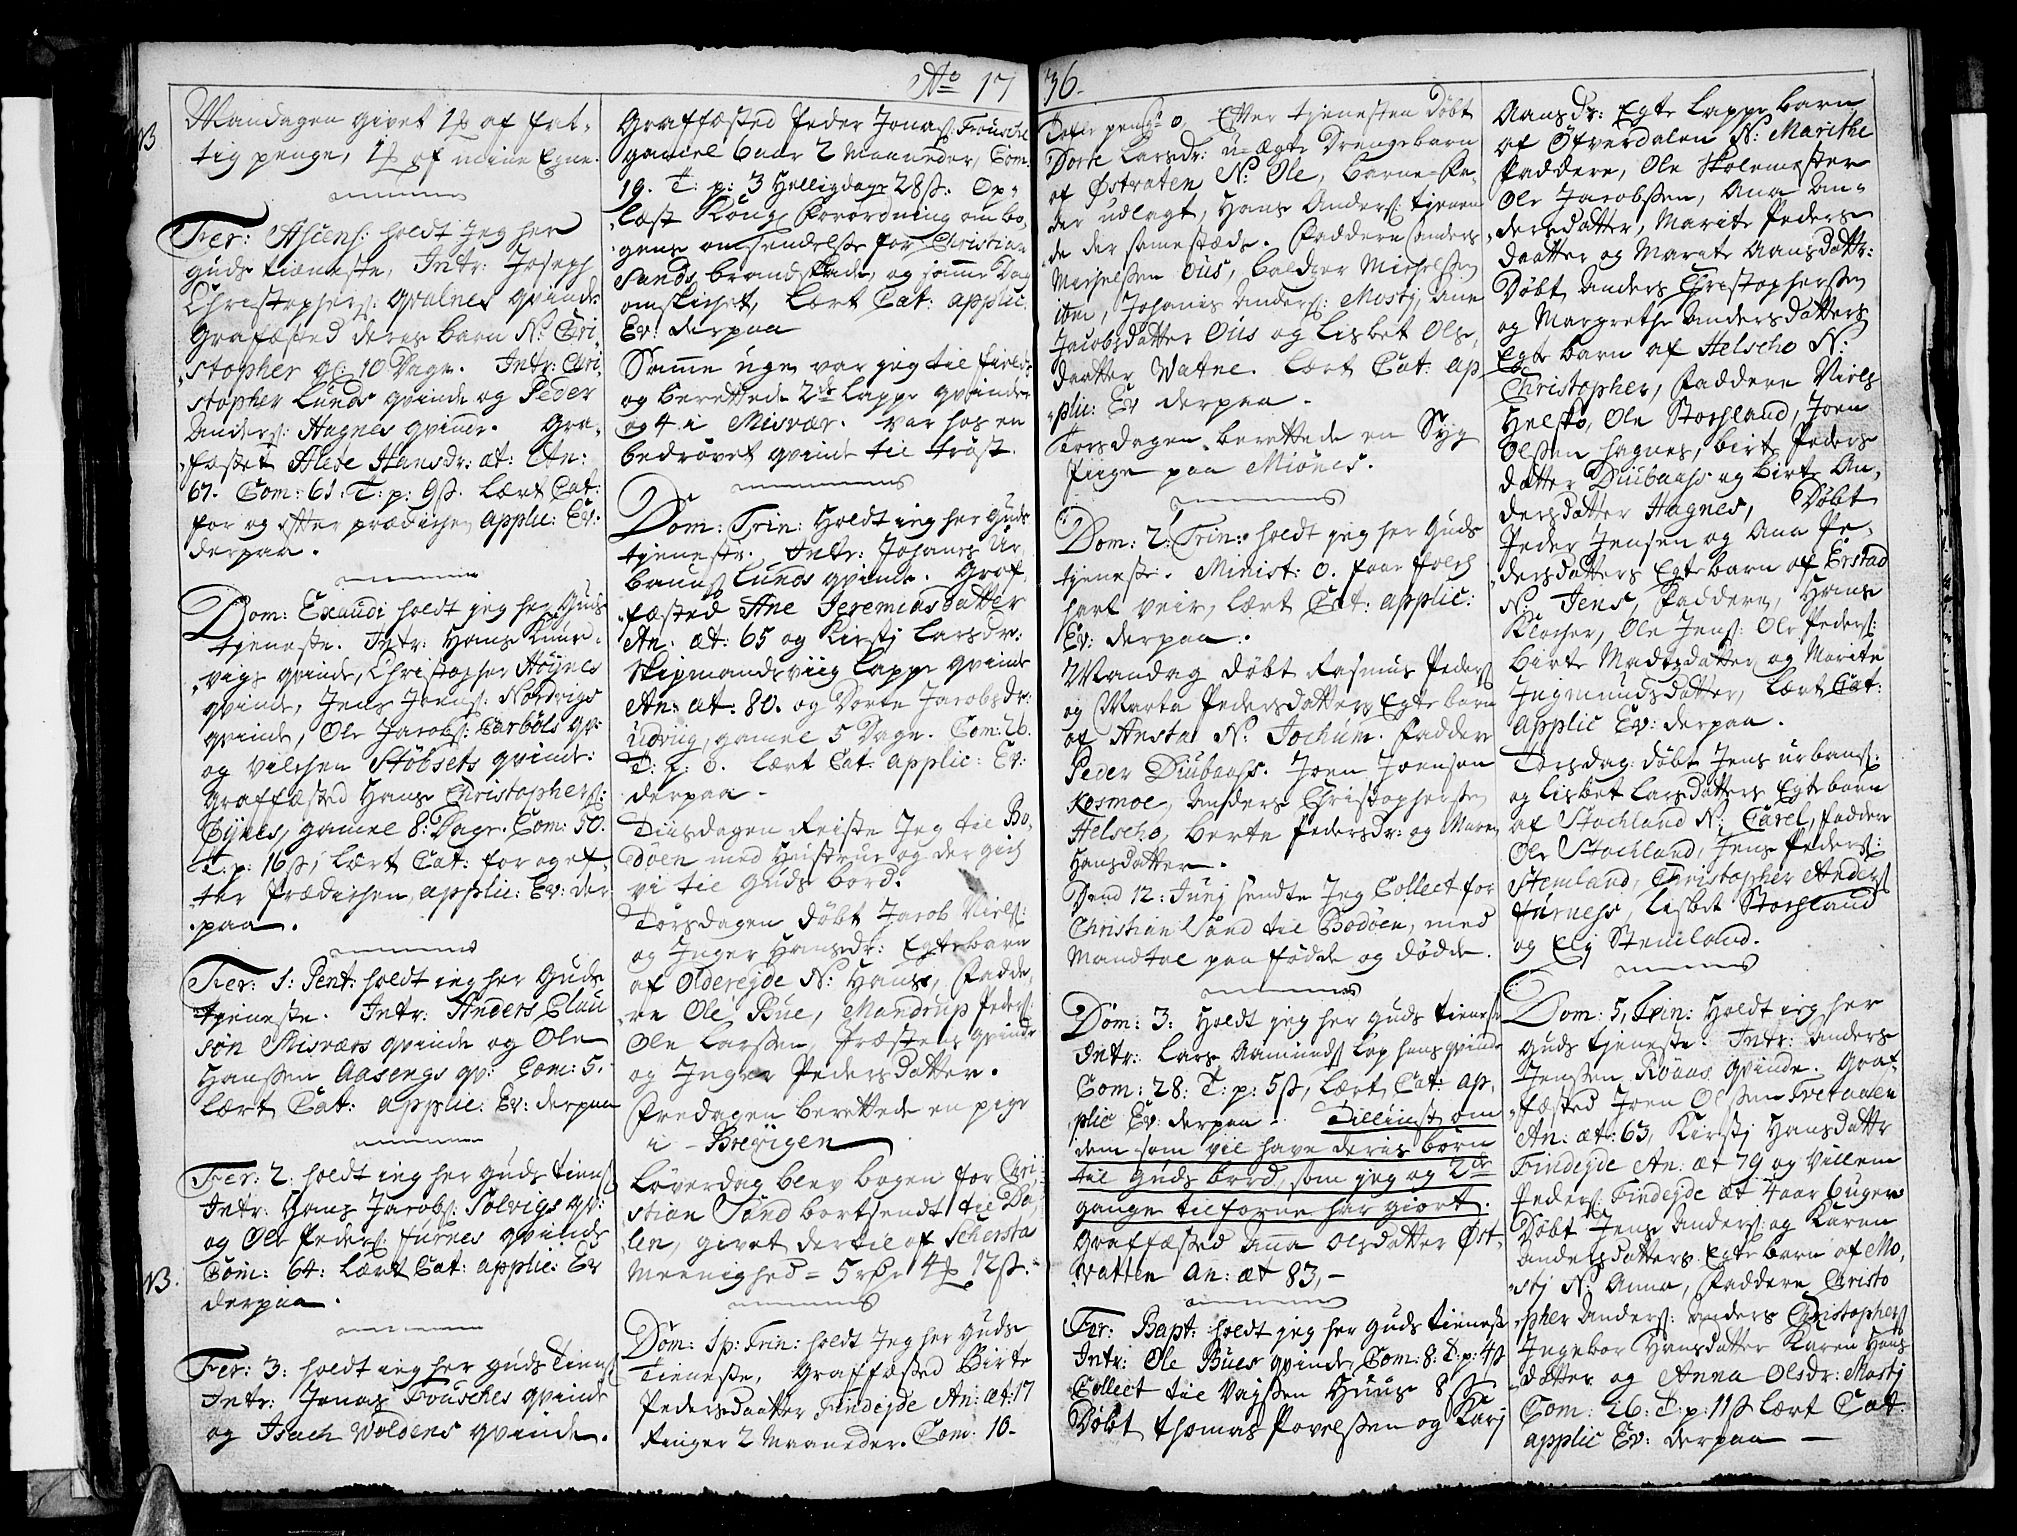 No 1736.
NB
Mandagen givet 1 ß af fat-
tig penge, 1 ß af mine Egne.
Fer: Ascens: holdt jeg her
Guds tieneste, Intr: Joseph
Christophers: Gvalnes qvinde
Grafæsted deres barn N: Cri-
stopher gl: 10 Dage. Intr: Chri-
stopher Lunds qvinde og Peder
Anders: Hagnes qvinde. Gra-
fæstet Alise Hansdr: æt: An:
67. Com: 61. T: p: 9 ß. lært Cat:
for og efter prædichen applic: Ev:
derpaa.
Dom: Exaudi holdt jeg her Guds
tjeneste. Intr: Hans
vigs qvinde, Christopher Høynes
qvinde, Jens Joens: Nordvigs
qvinde, Ole Jacobs: Carbøls qv:
og Vilchen Støbsets qvinde:
Graffæsted Hans Christophers:
Eynes, gamel 8: Dage. Com: 50.
T: p: 16 ß, lært Cat: for og ef-
ter Prædichen, applic: Ev: der-
paa.
Fer: 1: Pent: holdt jeg her Guds
tjeneste. Intr: Anders Clau
søn Misværs qvinde og Ole
Hanssen Aasengs qv: Com: 5.
lært Cat: applic: Ev: derpaa
Fer: 2: holdt jeg her Guds tienst
Intr: Hans Jacobs: Solvigs qv:
og Ole Peders: Furnes qvinde
Com: 64: lært Cat: applic: Ev
derpaa.
NB.
Fer: 3: holdt jeg her Guds Tienst
Intr: Jonas Fousches qvinde
og Isach Woldens qvinde.
Graffæsted Peder Jonas: Fousche
gamel 6 aar 2 Maaneder, Com:
19. T: p: 3 Helligdage 28 ß. Op-
læst Kong: Forordning om bo-
gens omsendelse for Christian
Sands brandskade, og samme Dag
omskichet, lært Cat: applic:
Ev: derpaa
Samme uge var jeg til fields
og berettede 2de Lappe qvinder
og 4 i Misvær. var hos en
bedrøvet qvinde til trøst.
Dom: Trin: Holdt jeg her Guds
tjeneste. Intr: Johanes Ur-
banus Lunds qvinde. Graf-
fæsted Ane Jeremiasdatter
An: æt: 65 og Kirstj Larsdr:
Skipmandsviig Lappe qvinde
An: æt: 80. og Dorte Jacobsdr:
Udrug, gamel 5 Dage. Com: 26.
T: p: 0. lært Cat: applic: Ev:
derpaa.
Tiisdagen Reiste Jeg til Bo-
døen med Hustrue og der gich
vi til Guds bord.
Torsdagen døbt Jacob Niels:
og Inger Hansdr: Egte barn
af Oldereyde N: Hans, Fadde-
re Ole Bue, Mandrup Peders:
Ole Larssen, Præstens qvinde
og Inger Pedersdatter.
Fredagen berettede en pige
i Brevigen
Løverdag blev bogen for Chri-
stian Sand bortsendt til Da-
len, givet dertil af Schersta
Meenighed = 5 rdr 4 ß 12 ß:
Dom: 1 p: Trin: holdt Jeg her Guds
Tieneste, Graffæsted Birte
Pedersdaatter Findeyde An: æt: 17
Ringer 2 Maaneder. Com: 10.
Tafle peng: 0. Efter tjenesten døbt
Dorte Larsdr: u-ægte Drengebarn
af Østvaten N: Ole, barne-Fa-
der udlagt, Hans Anders: tjenen-
de der samestæds. Faddere Anders
Michelssen Ous, Baldzer Michelssen
ibm, Johanes Anders: Mostj, Ane
Jacobsdatter Ous og Lisbet Ols-
daatter Watne. lært Cat: ap-
plic: Ev derpaa.
Torsdagen berettede en Syg
Pige paa Miønes.
Dom: 2: Trin: holdt jeg her Guds
tjeneste. Minist: 0. faae folch
hart veir, lært Cat: applic:
Ev: derpaa.
Mandag døbt Rasmus Peders
og Marta Pedersdatters Egte barn
af Ansta N: Jochum. Fadder
Peder Diubaass. Joen Joensøn
Kosmoe, Anders Christophersen
Helscho, Berte Pedersdr: og Maren
Hansdatter.
Dend 12: Junj sendte Jeg Collect for
Christian Sand til Bodøen, med
Mandtal paa fødde og dødde.
Dom: 3: Holdt jeg her Guds tieneste
Intr: Lars Aamunds Lap hans qvinde
Com: 28: T: p: 5 ß, lært Cat: ap-
plic Ev: derpaa. Tillyust om
dem som vil have deris børn
til Guds bord, som jeg og 2de
gange tilforne har giort.
Graffæsted Ana Olsdatter Øst-
vatten An: æt 83,-
Fer: Bapt: holdt jeg her Guds tieneste
Intr: Ole Bues qvinde, Com: 8: T: p: 4 ß
Collect til Vaysen Huus 8 ß
Døbt Thomas Povelssen og Karj
Aansdr: Egte Lappe barn
af Øfverdalen N: Marithe
Faddere, Ole Skolemester
Ole Jacobssen, Ana An-
dersdatter, Marite Peders-
daatter og Marite Aansdattr:
Døbt Anders Christophersen
og Margrethe Andersdatters
Egte barn af Helscho N:
Christopher, Faddere Niels
Helsko, Ole Storsland, Joen
Olssen Hagnes, birte Peders
datter Diubaass og birte An-
dersdatter Hagnes, Døbt
Peder Jensen og Ana Pe-
dersdatters Egte barn af Erstad
N: Jens, Faddere, Hans
Klocher, Ole Jens: Ole Peders:
birte Madsdatter og Marite
Ingmundsdatter, lært Cat:
applic Ev: derpaa.
Torsdag: døbt Jens Urbans:
og Lisbet Larsdatters Egte barn
af Stochland N: Carel, faddere
Ole Stochland, Jens Peders:
Stemland, Christopher Anders
Furness, Lisbet Storsland
og Elj Stemland.
Dom: 5, Trin: Holdt jeg her
Guds tjeneste. Intr: Anders
Jenssen Röaas qvinde. Graf-
fæsted Joen Olssen Tretaalen
An: æt: 63, Kirstj Hansdattr
Findeyde An: æt 79 og Villem
Peders: Findeyde æt 4 aar 6 uger
Døbt Jens Anders: og Karen
Andersdatters Egte barn af Mo-
stj N: Anna, Faddere Christo
pher Anders: Anders Christophers
Ingebor Hansdatter Karen Hans
datter og Anna Olsdr: Mostj
Com: 26. T: p: 11 ß lært Cat:
applic Ev: derpaa